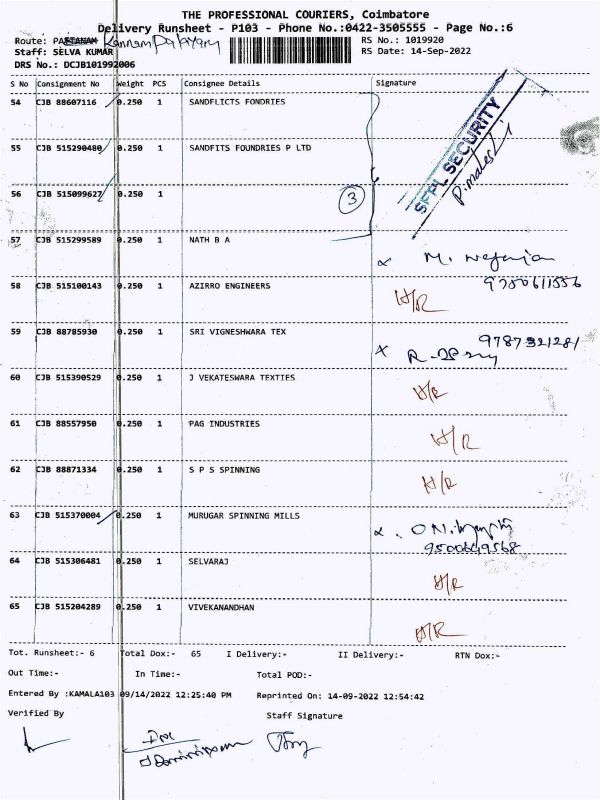 THE PROFESSIONAL COURIERS, Coimbatore
Delivery Runsheet - P103 - Phone No.:0422-3505555 - Page No.:6
Route: Kannampalayam
RS No.: 1019920
Staff: SELVA KUMAR
RS Date: 14-Sep-2022
DRS No.: DCJB101992006
S No Consignment No Weight PCS Consignee Details Signature
54 CJB 88607116 0.250 1 SANDFLICTS FONDRIES
SFPL SECURITY
55 CJB 515290480 0.250 1 SANDFITS FOUNDRIES P LTD
56 CJB 515099627 0.250 1
3
57 CJB 515299589 0.250 1 NATH B A
9750611556
58 CJB 515100143 0.250 1 AZIRRO ENGINEERS H/R
59 CJB 88785930 0.250 1 SRI VIGNESHWARA TEX
9787321281
60 CJB 515390529 0.250 1 J VEKATESWARA TEXTIES H/R
61 CJB 88557950 0.250 1 PAG INDUSTRIES H/R
62 CJB 88871334 0.250 1 S P S SPINNING H/R
63 CJB 515370004 0.250 1 MURUGAR SPINNING MILLS
9500649568
64 CJB 515306481 0.250 1 SELVARAJ H/R
65 CJB 515204289 0.250 1 VIVEKANANDHAN H/R
Tot. Runsheet:- 6 Total Dox:- 65 I Delivery:- II Delivery:- RTN Dox:-
Out Time:- In Time:- Total POD:-
Entered By :KAMALA103 09/14/2022 12:25:40 PM Reprinted On: 14-09-2022 12:54:42
Verified By Staff Signature